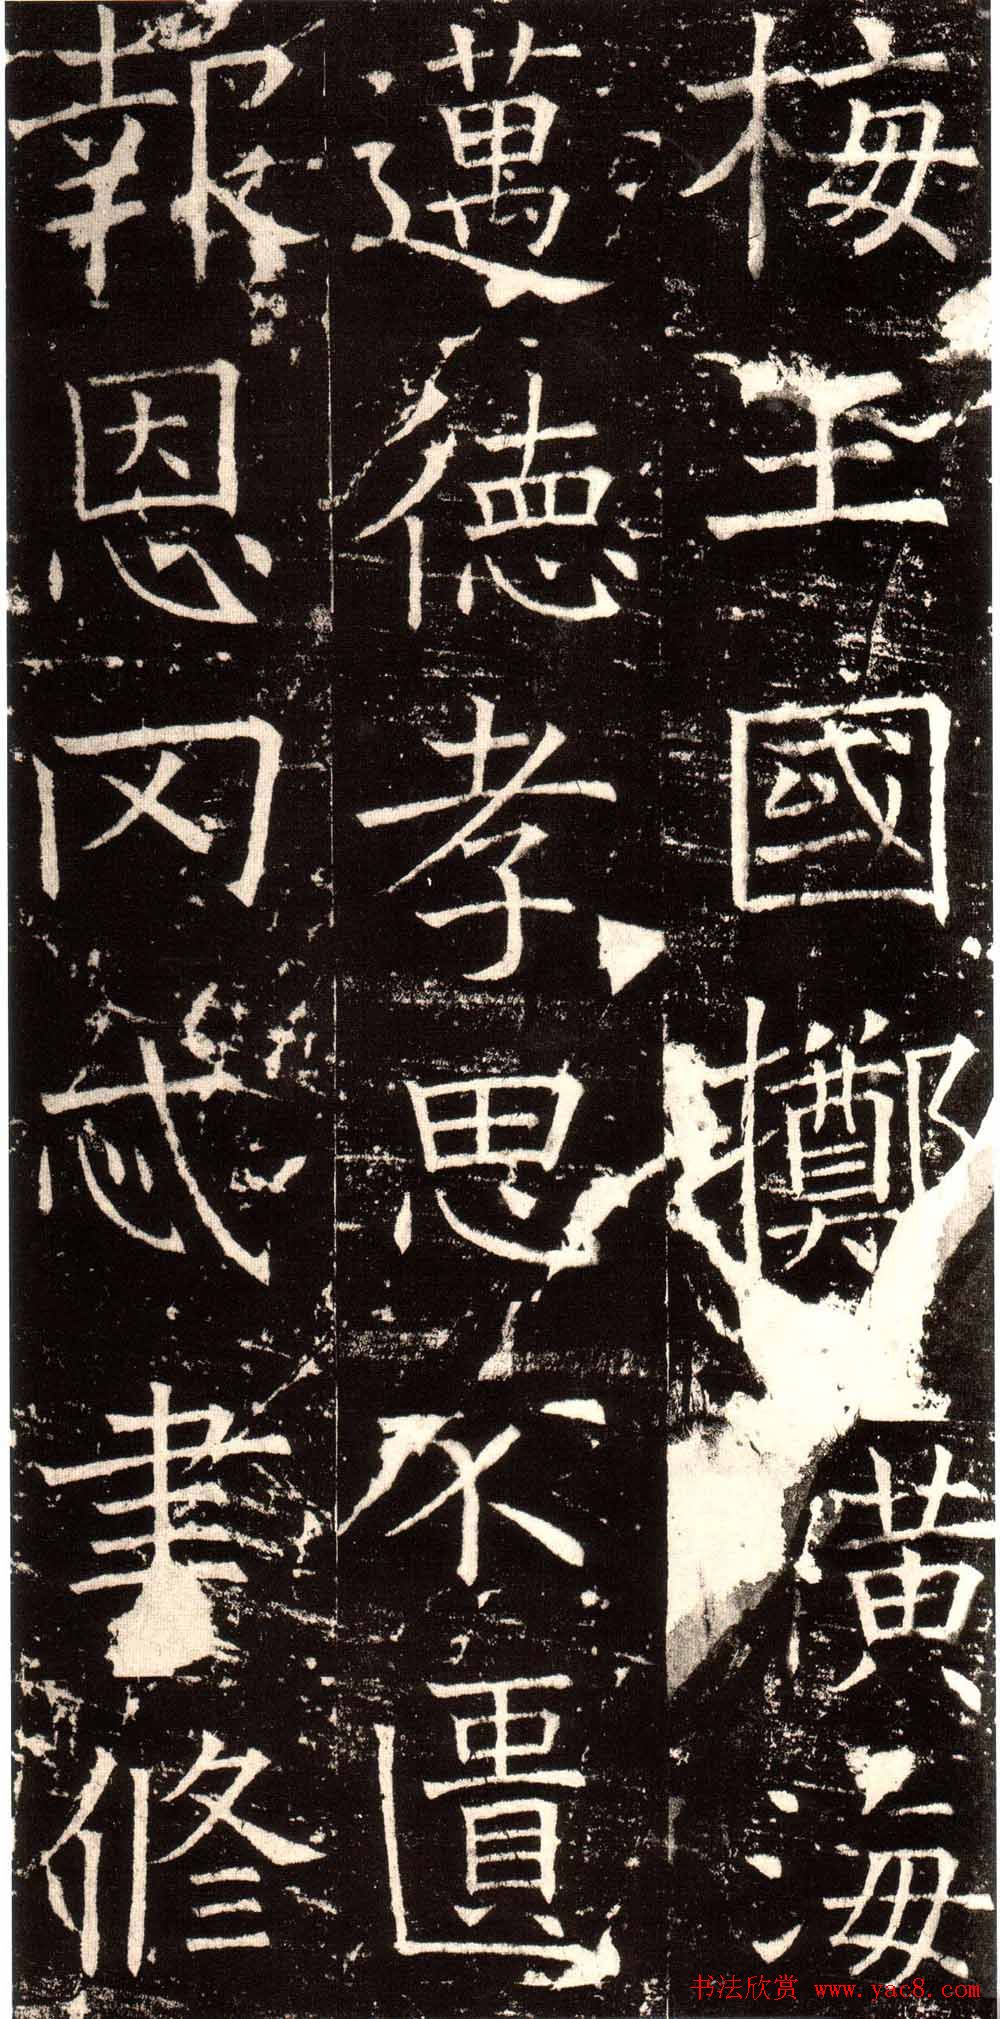 梅王國擲黃海
邁德孝思不匱
報恩罔忒聿修
书法欣赏 www.yac8.com